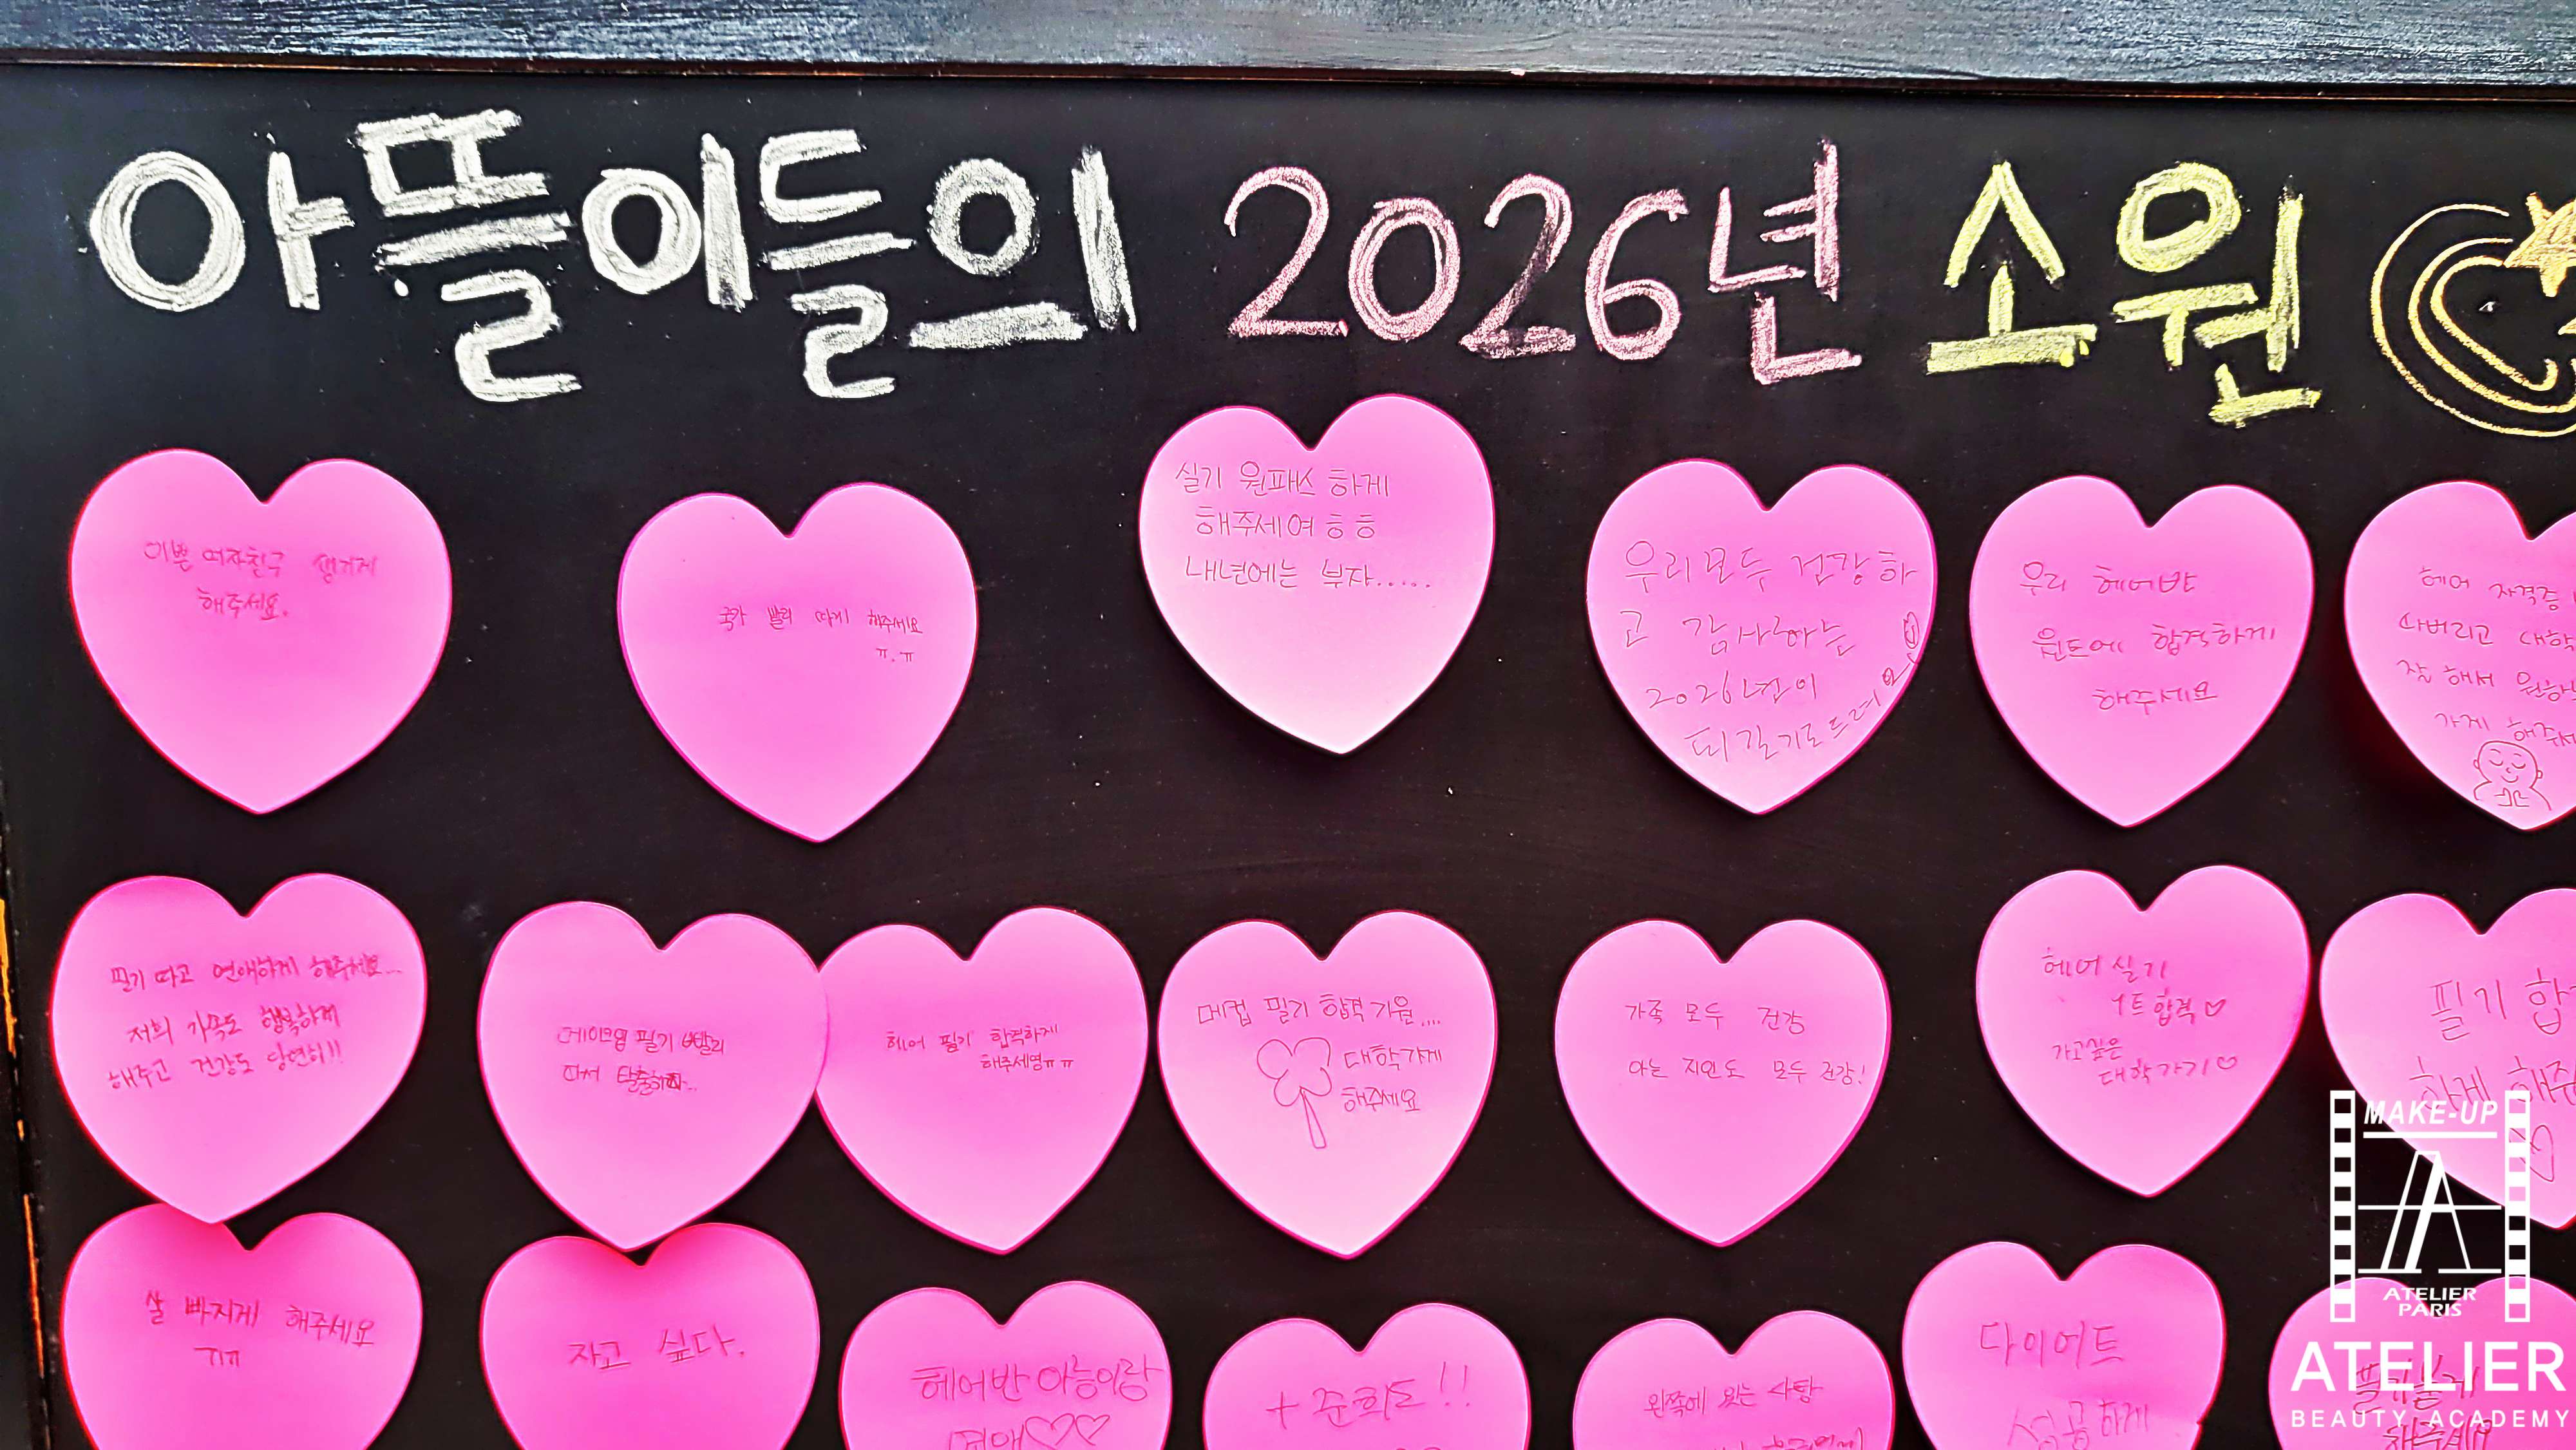 아뜰이들의 2026년 소원
이쁜 여자친구 생기게
해주세요.
국가 빨리 따게 해주세요
ㅠ.ㅠ
실기 원패스 하게
해주세여 ㅎㅎ
내년에는 부자......
우리 모두 건강하
고 감사하는
2026년이
되길 기도드려요
우리 헤어반
원트에 합격하게
해주세요
헤어 자격증
따버리고 대학
잘 해서 원하
가게 해주세
필기 따고 연애하게 해주세요...
저희 가족도 행복하게
해주고 건강도 당연히!!
메이크업 필기 빨리
따서 탈출하자...
헤어 필기 합격하게
해주세영ㅠㅠ
메컵 필기 합격 기원....
대학가게
해주세요
가족 모두 건강
아는 지인도 모두 건강!
헤어 실기
1트 합격♡
가고싶은
대학가기♡
필기 합
하게 해주
살 빠지게 해주세요
ㅠㅠ
자고 싶다.
헤어반 아능이랑
연애♡♡
+ 준희도!!
왼쪽에 있는 사탕
다이어트
성공하게
MAKE-UP
ATELIER
PARIS
ATELIER
BEAUTY ACADEMY